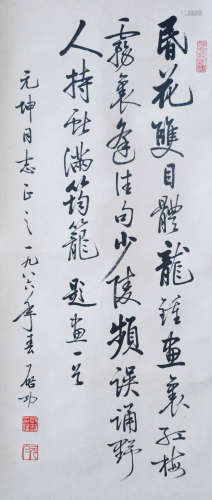 昏花雙目體龍鍾畫裏紅梅
霧裏逢佳句少陵頻誤誦野
人持贈滿筠籠 題畫一首
元坤同志正之一九八六年春 啟功